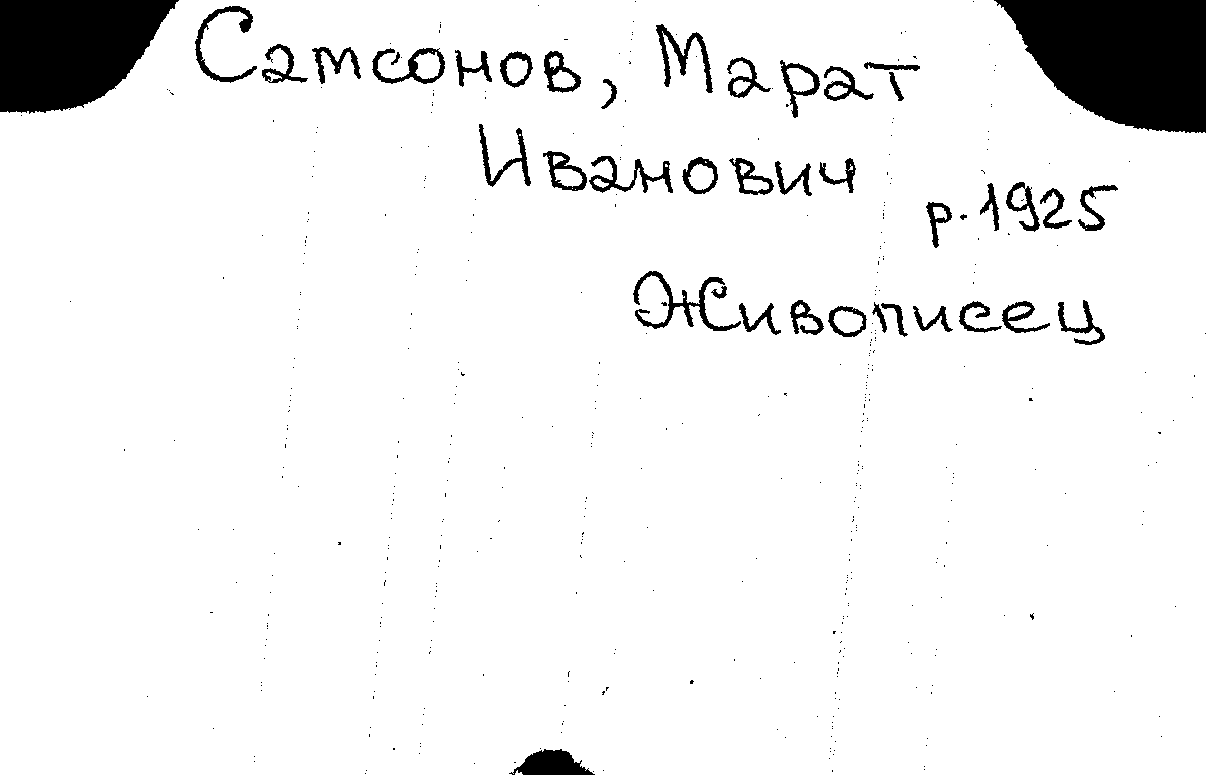 Самсонов, Марат
Иванович
р. 1925
Живописец